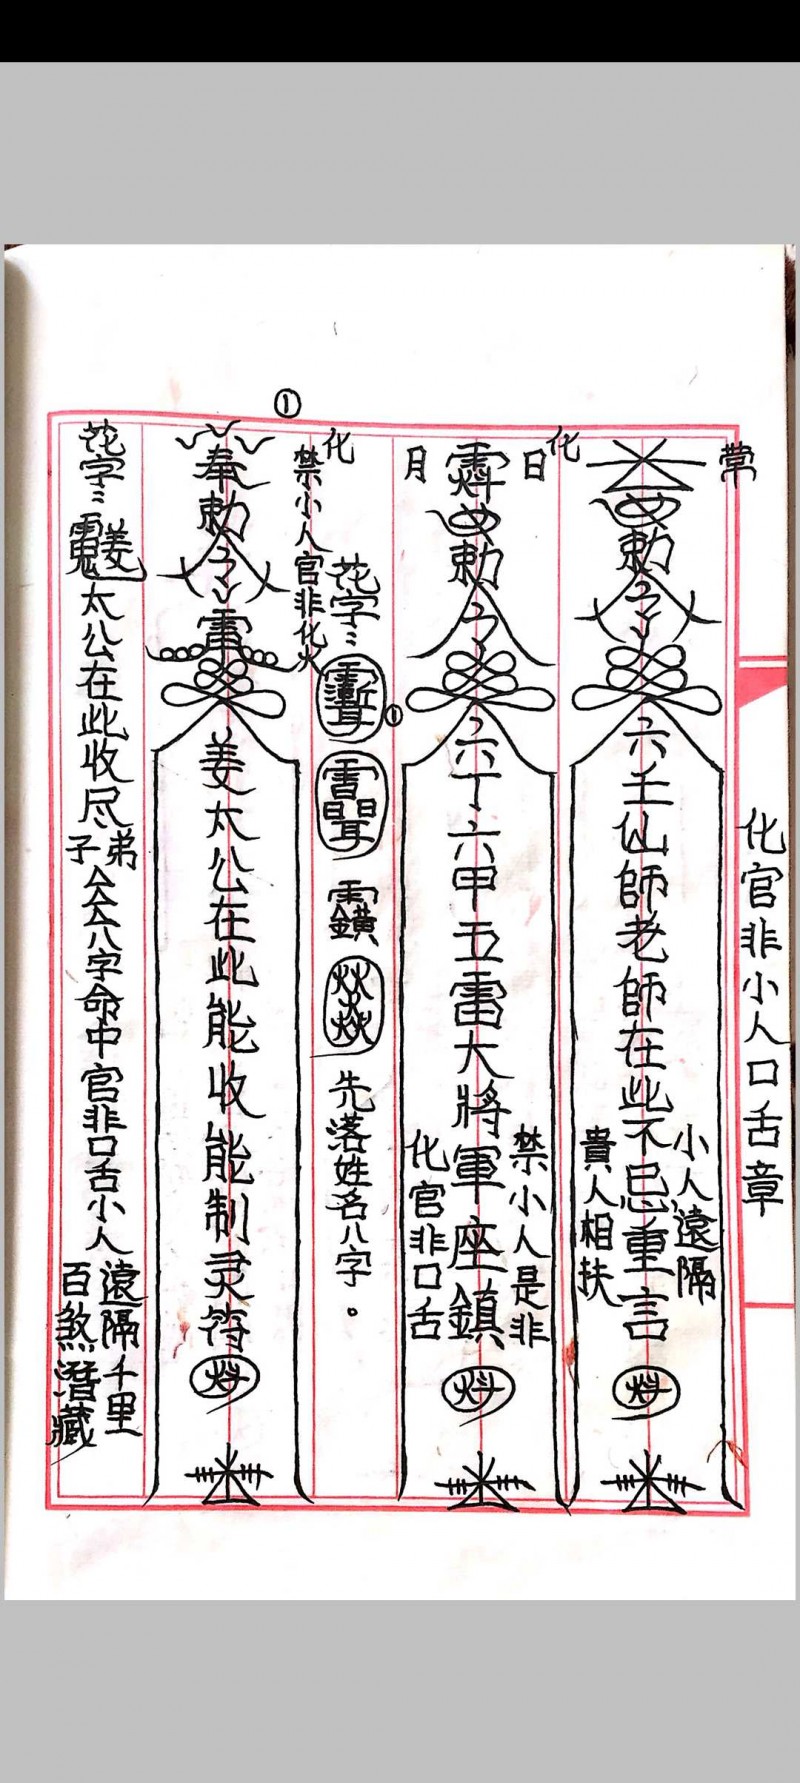 化官非小人口舌章
常
勅令
六壬仙師老師在此不忌重言
小人遠隔
貴人相扶
化
日
月
勅令
六丁六甲五雷大將軍座鎮
禁小人是非
化官非口舌
①
化
禁小人官非化火
花字:
先落姓名八字。
①
奉勅令
雷
姜太公在此能收能制灵符
花字:
姜太公在此收尽
弟子
八字命中官非口舌小人
遠隔千里
百煞潛藏